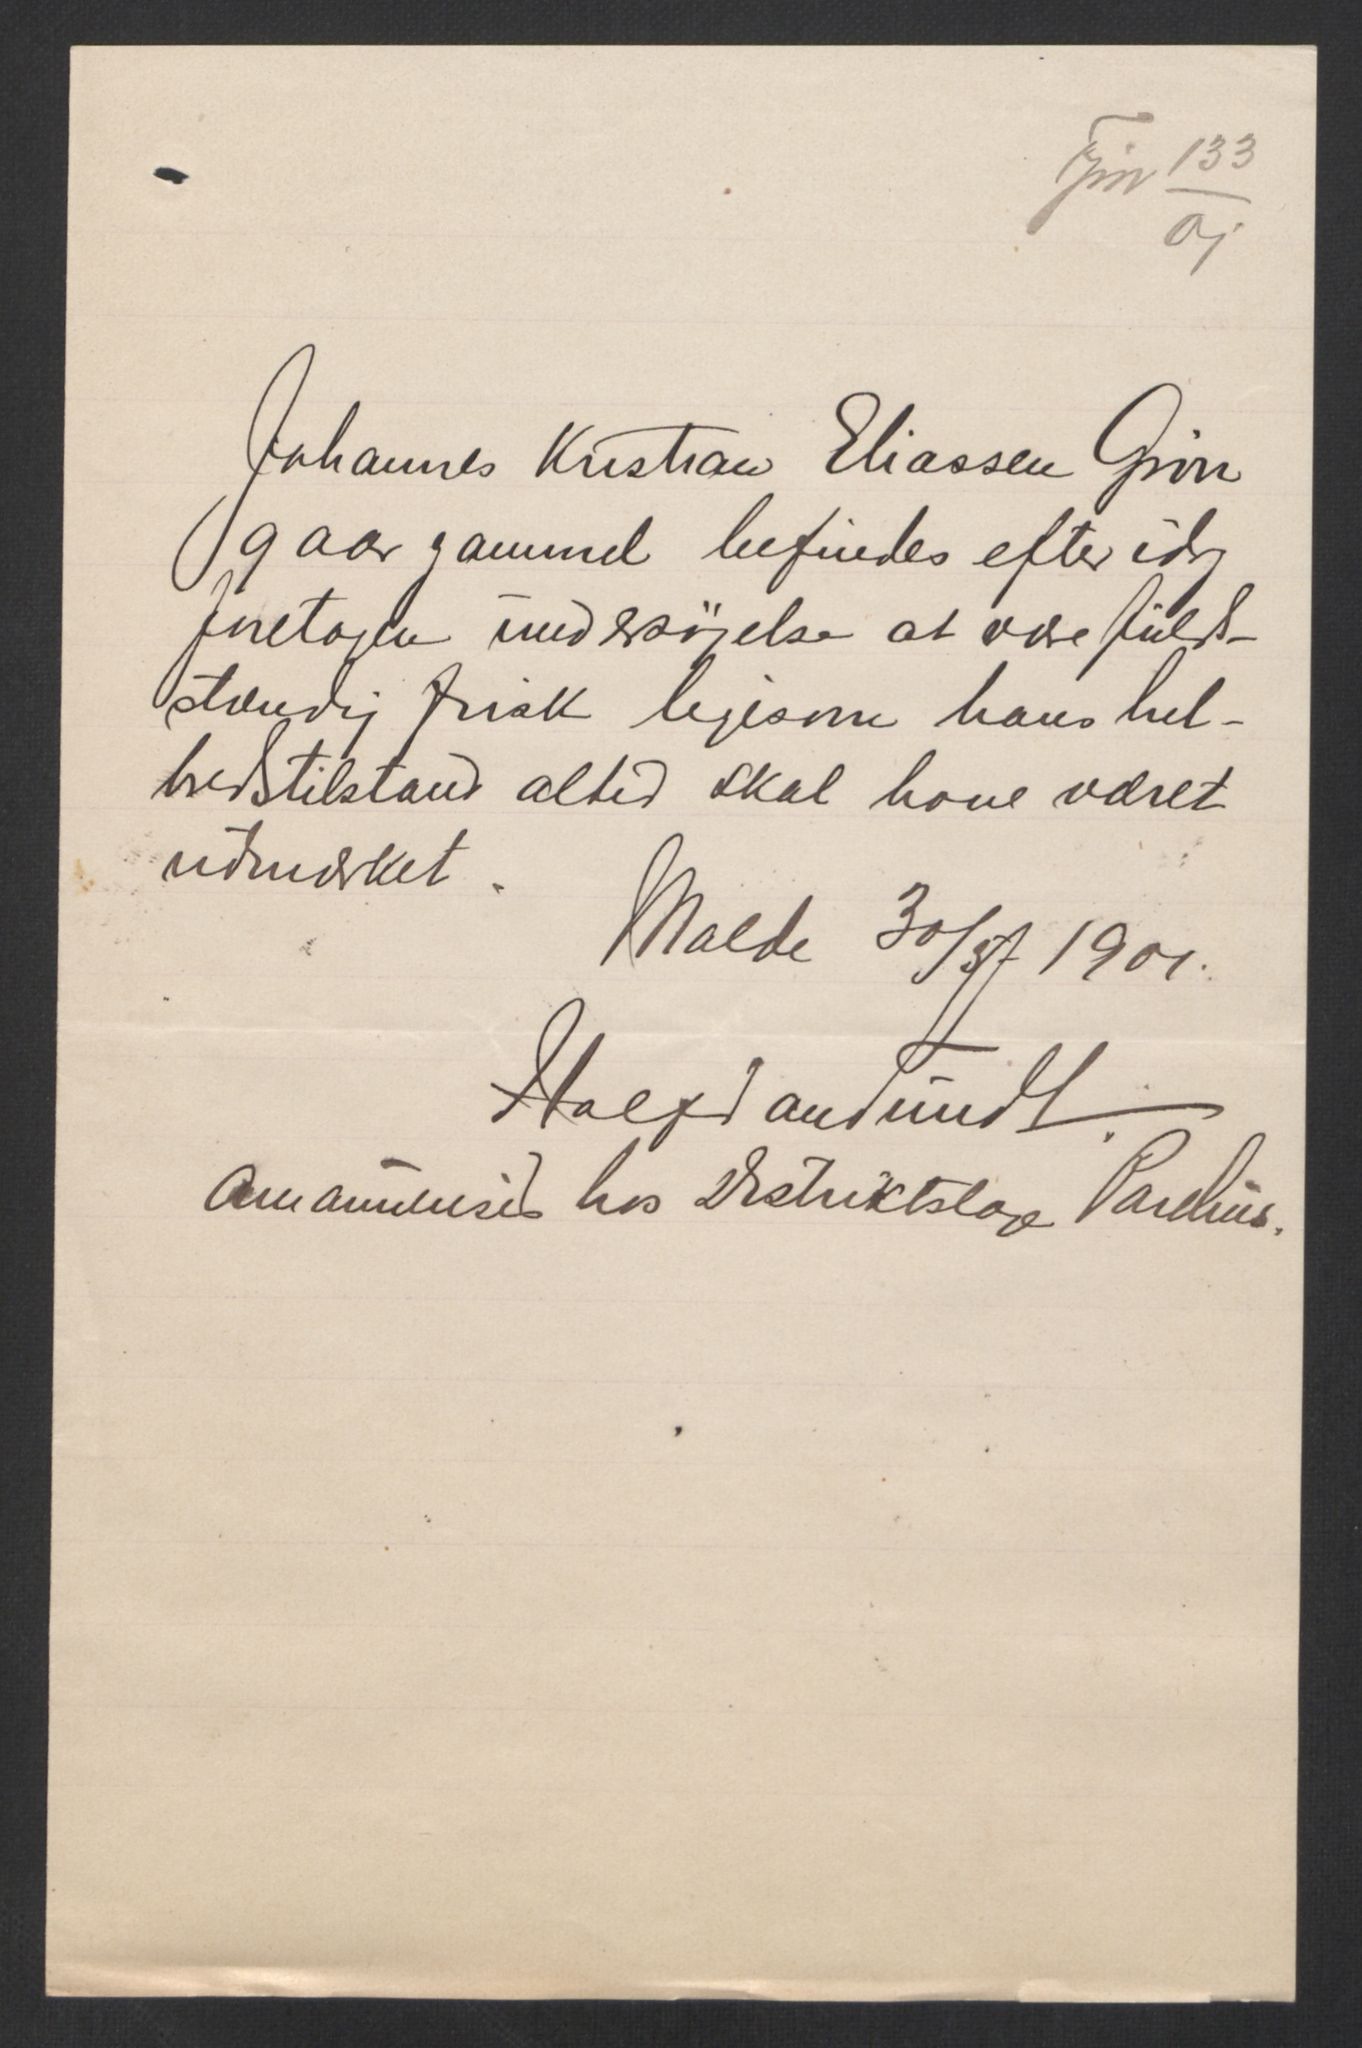 133
01
Johannes Kristian Eliassen Grön
9 aar gammel befindes efter idag
foretagen undersögelse at være fuld-
stændig frisk ligesom hans hel-
bredstilstand altid skal have været
udmærket.
Malde 30/5 1901.
Halfdan Sundt.
Amanuensis hos Distriktslæge Parelius.